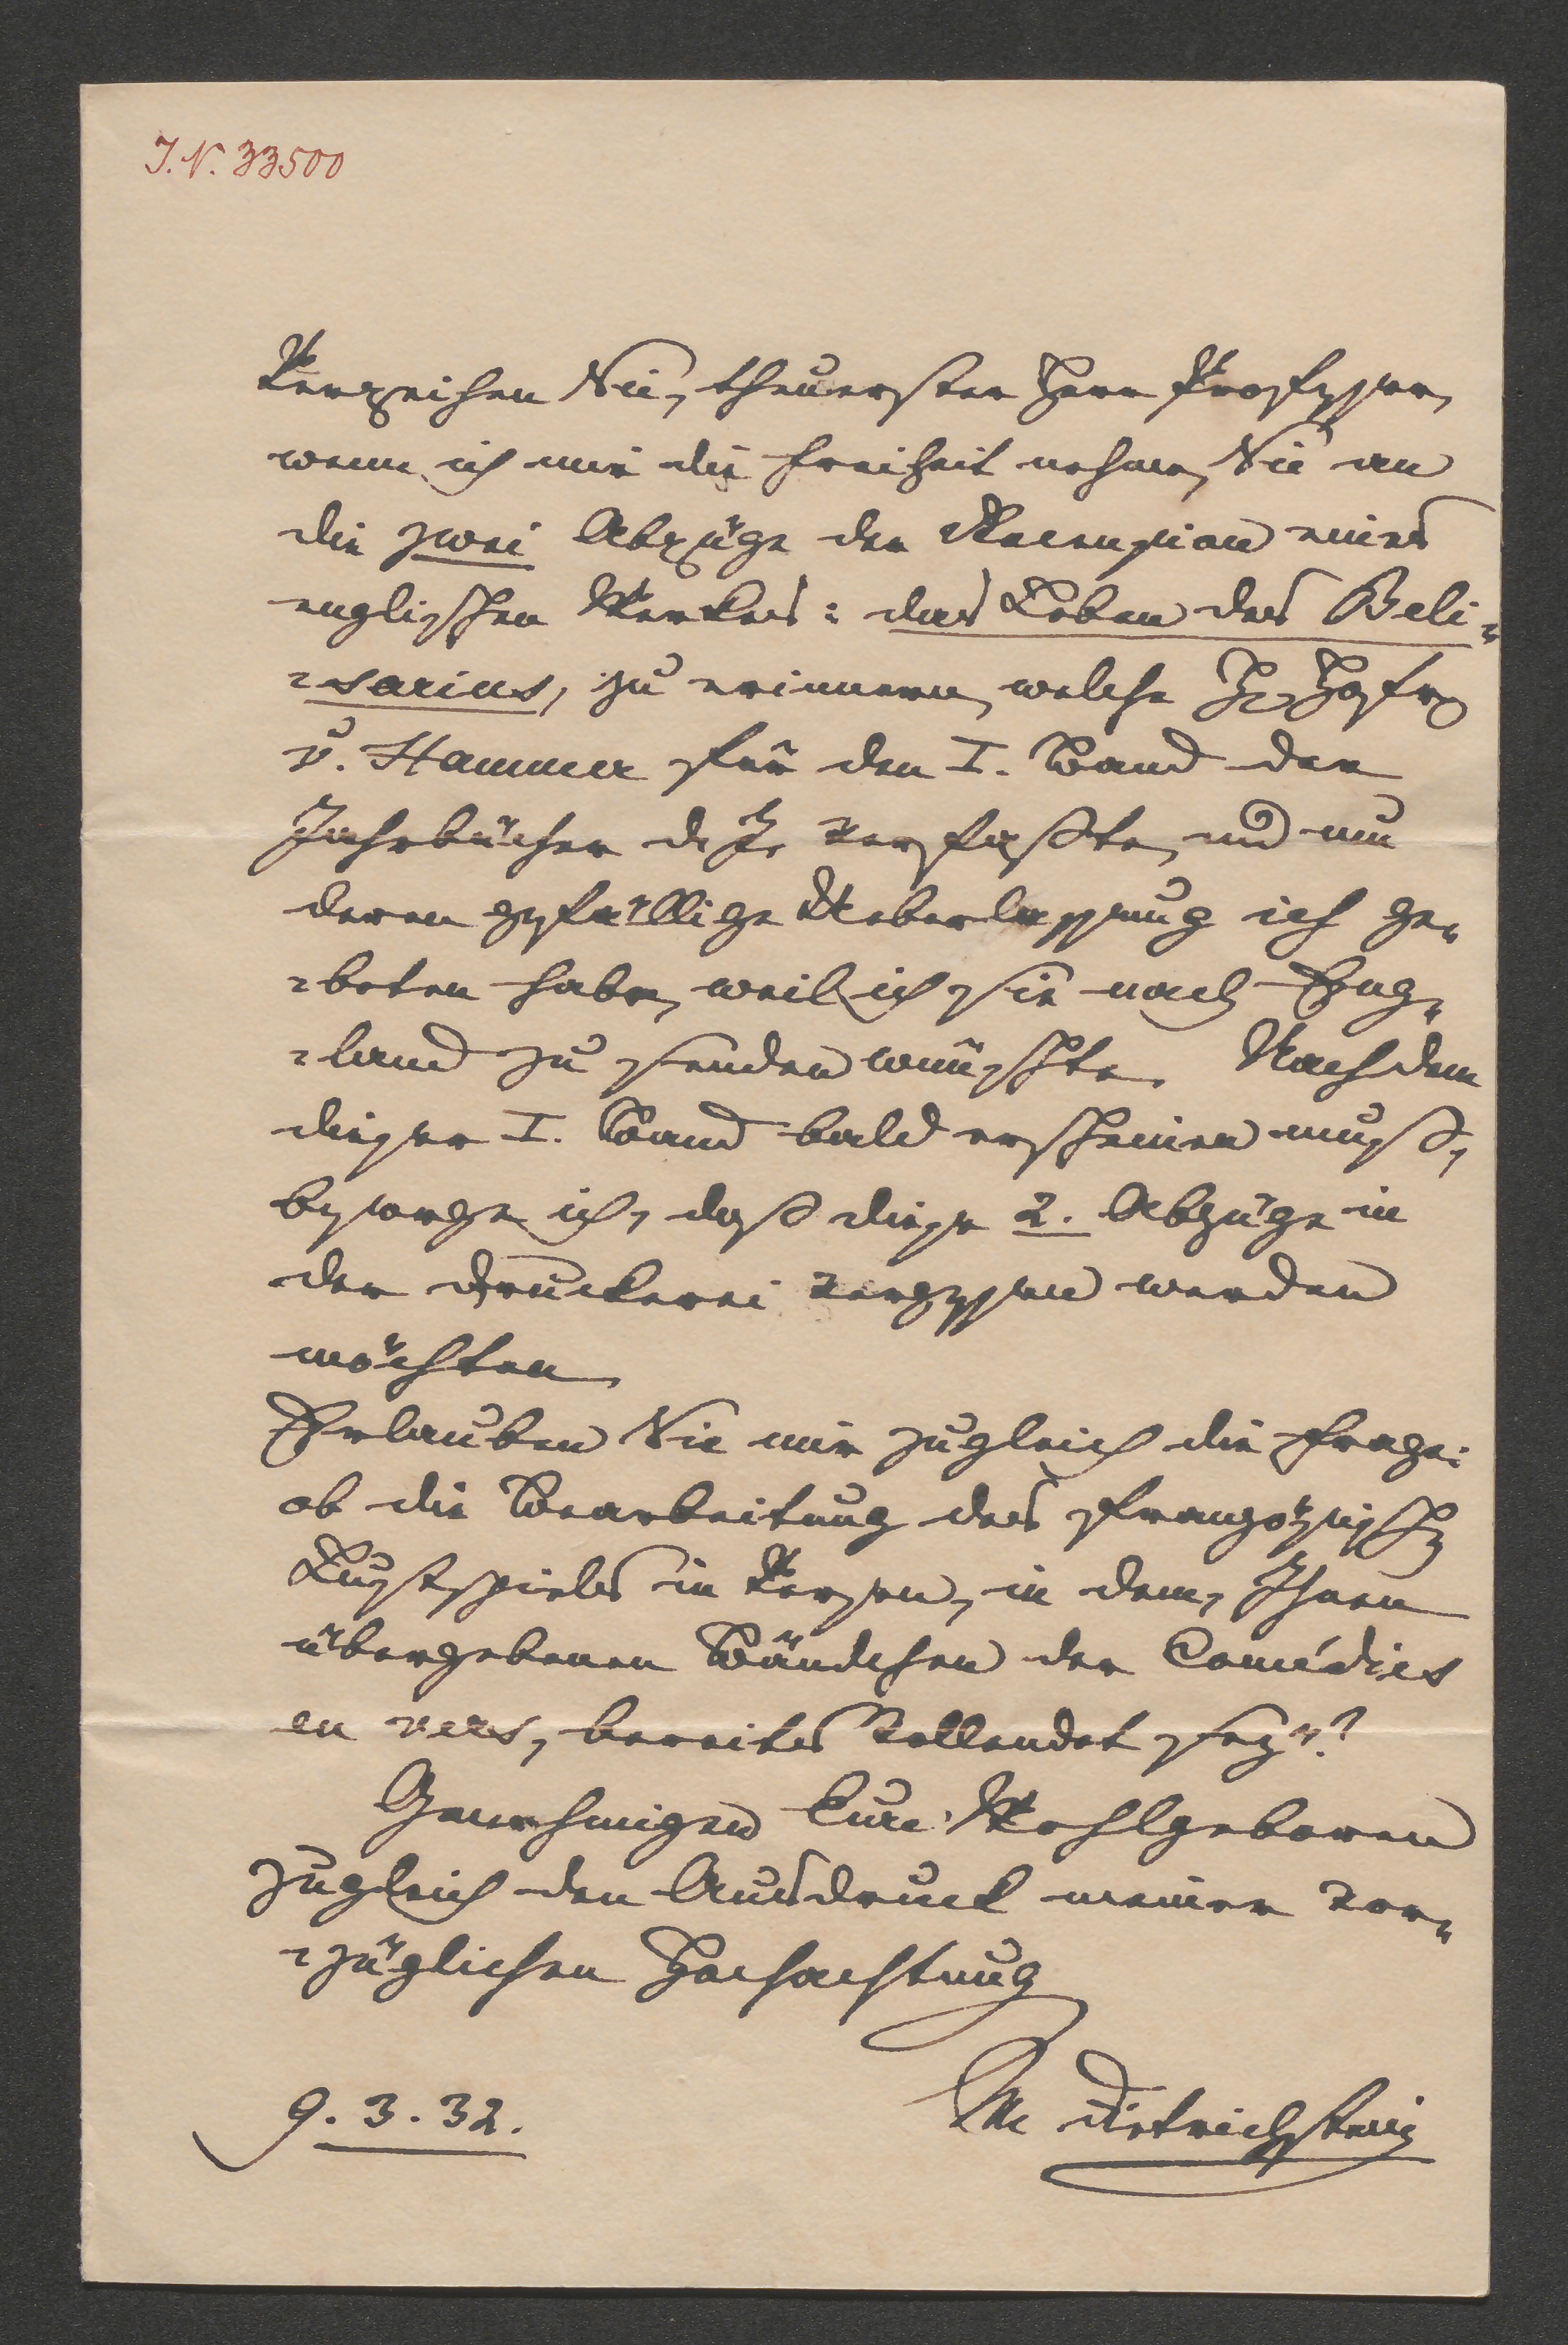 I.N. 33500
Verzeihen Sie, theuerster Herr Professor,
wenn ich mir die Freiheit nehme, Sie an
die zwei Abzüge der Recension eines
englischen Werkes: das Leben des Beli-
-sarius, zu erinnern, welche H. Hofr.
v. Hammer für den I. Band der
Jahrbücher d. J. verfaßte, und um
deren gefällige Ueberlassung ich ge-
-beten habe, weil ich sie nach Eng-
-land zu senden wünschte. Nachdem
dieser I. Band bald erscheinen muß,
besorge ich, daß diese 2. Abzüge in
der Druckerei vergessen werden
möchten.
Erlauben Sie mir zugleich die Frage:
ob die Bearbeitung des französisch
Lustspieles in Versen, in dem, Ihnen
übergebenen Bändchen der Comédies
en vers, bereits vollendet sey?
Genehmigen Eure Wohlgeboren
zugleich den Ausdruck meiner vor-
-züglichen Hochachtung
9.3.32. M Dietrichstein